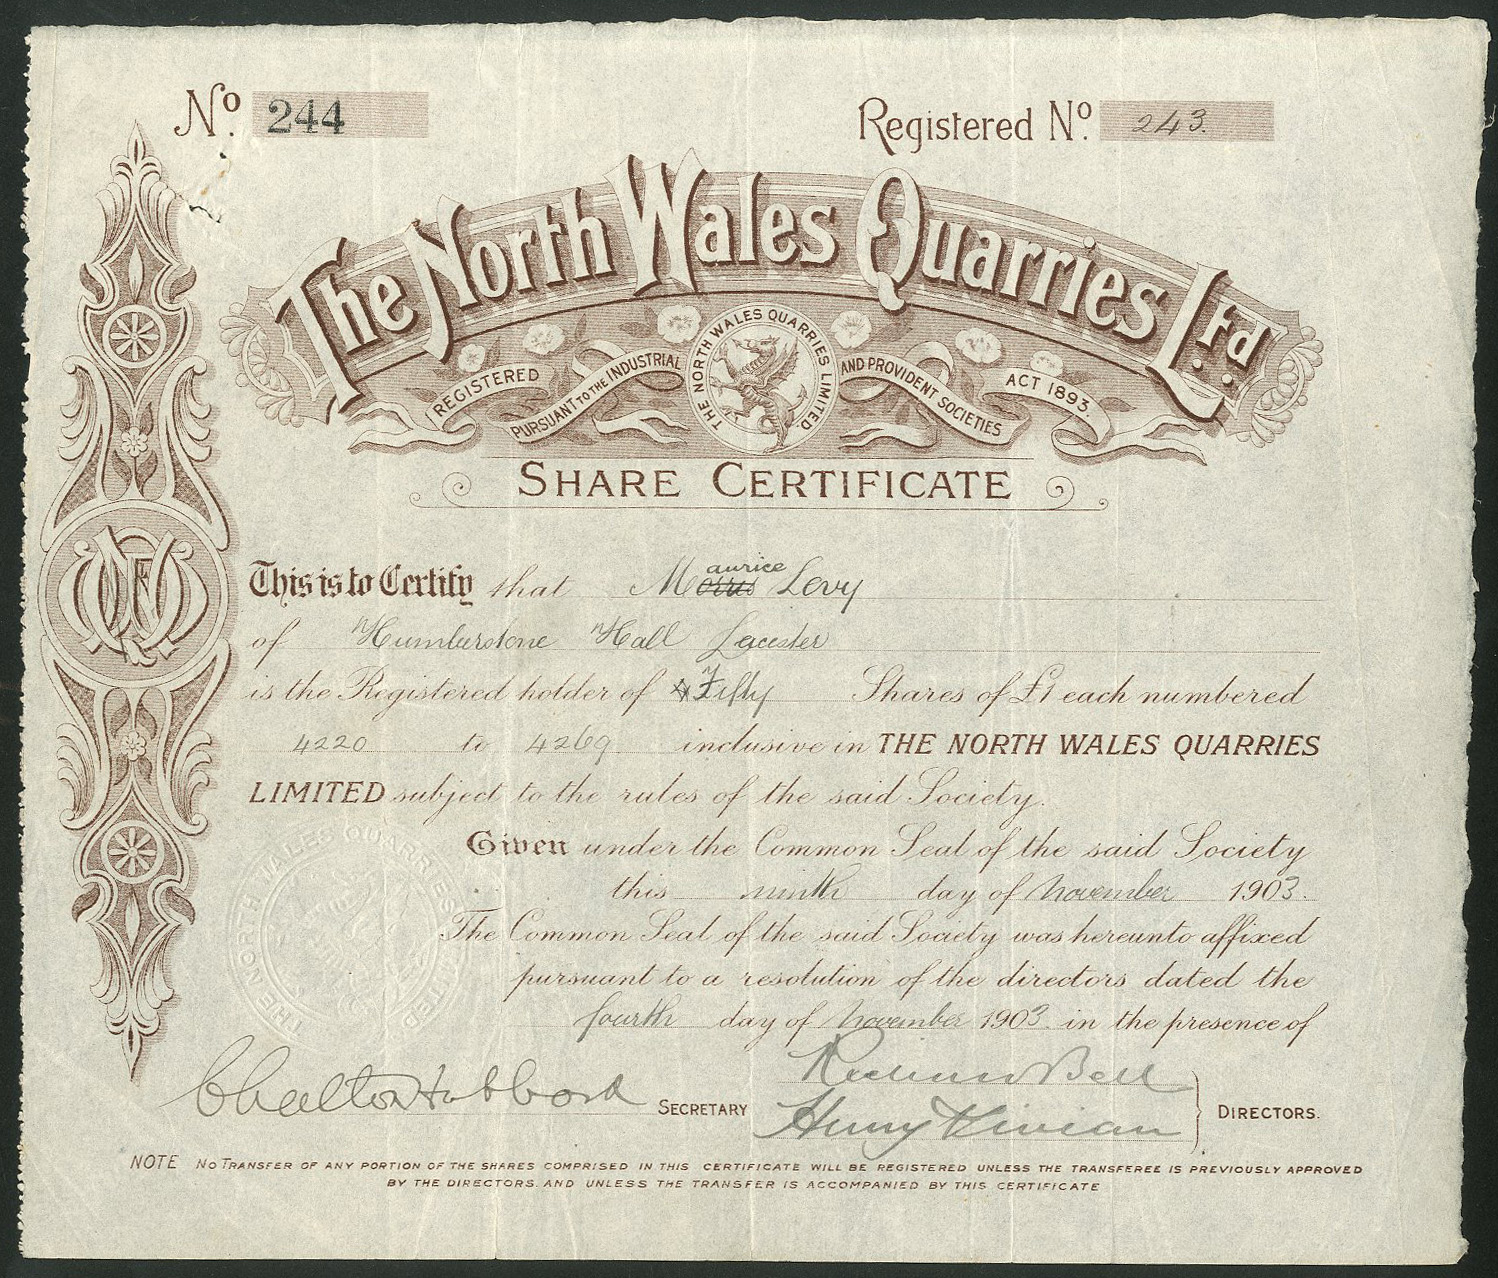 No. 244
Registered No. 243.
The North Wales Quarries Ltd.
REGISTERED PURSUANT TO THE INDUSTRIAL AND PROVIDENT SOCIETIES ACT 1893.
THE NORTH WALES QUARRIES LIMITED
SHARE CERTIFICATE
This is to Certify that Maurice Levy
of Humberstone Hall Leicester
is the Registered holder of Fifty Shares of £1 each numbered
4220 to 4269 inclusive in THE NORTH WALES QUARRIES
LIMITED subject to the rules of the said Society.
Given under the Common Seal of the said Society
this ninth day of November 1903.
The Common Seal of the said Society was hereunto affixed
pursuant to a resolution of the directors dated the
fourth day of November 1903 in the presence of
THE NORTH WALES QUARRIES LIMITED
Richard Bell
SECRETARY
Henry Vivian
DIRECTORS.
NOTE NO TRANSFER OF ANY PORTION OF THE SHARES COMPRISED IN THIS CERTIFICATE WILL BE REGISTERED UNLESS THE TRANSFEREE IS PREVIOUSLY APPROVED
BY THE DIRECTORS. AND UNLESS THE TRANSFER IS ACCOMPANIED BY THIS CERTIFICATE